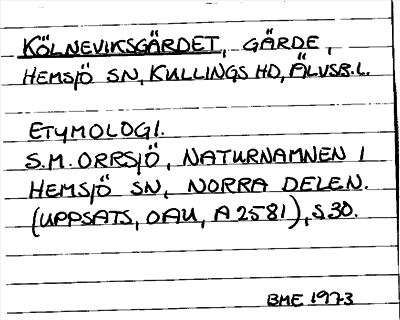 KÖLNEVIKSGÄRDET, GÄRDE,
HEMSJÖ SN, KULLINGS HD, ÄLVSB.L.
ETYMOLOGI.
S.M. ORRSJÖ, NATURNAMNEN I
HEMSJÖ SN, NORRA DELEN.
(UPPSATS, OAU, A 2581), S 30.
BME 1973